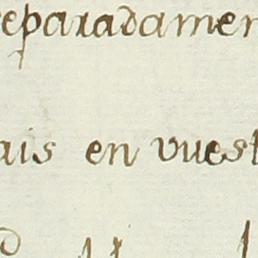 eparadamen
ais en vuest